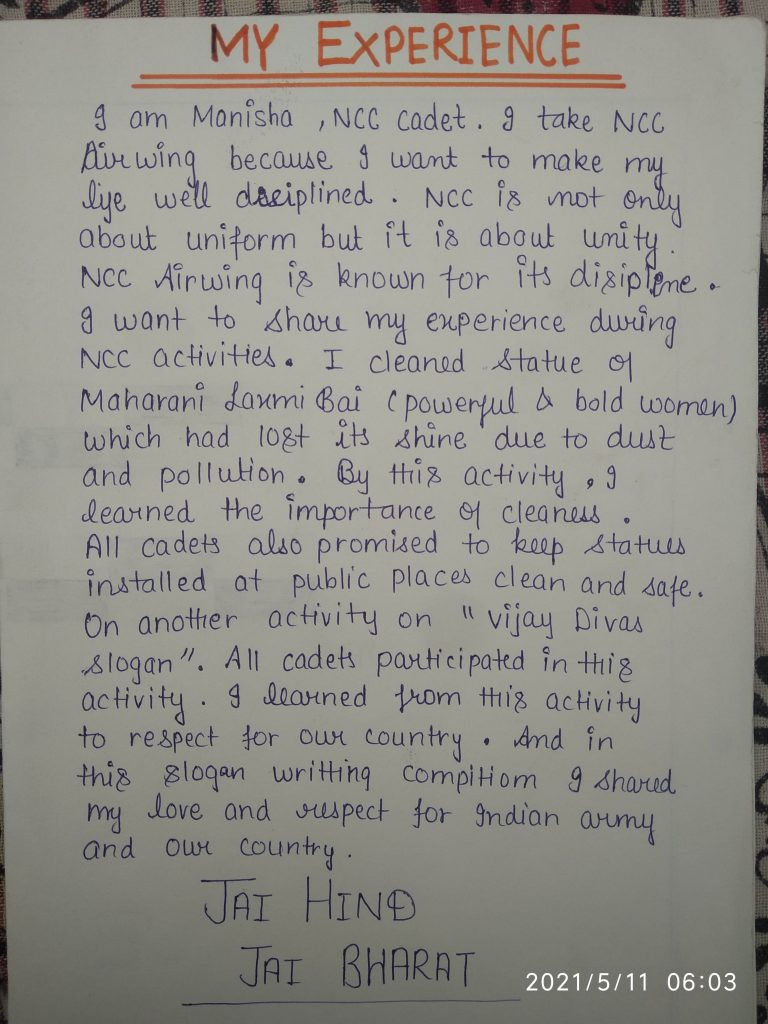 MY EXPERIENCE
I am Manisha , NCC cadet . I take NCC
Airwing because I want to make my
life well desciplined . NCC is not only
about uniform but it is about unity .
NCC Airwing is known for its disipline .
I want to share my experience during
NCC activities . I cleaned statue of
Maharani Laxmi Bai (powerful & bold women)
which had lost its shine due to dust
and pollution . By this activity , I
learned the importance of cleaness .
All cadets also promised to keep statues
installed at public places clean and safe .
On another activity on " Vijay Divas
slogan ". All cadets participated in this
activity . I learned from this activity
to respect for our country . And in
this slogan writting compitiom I shared
my love and respect for Indian army
and our country .
JAI HIND
JAI BHARAT
2021/5/11 06:03